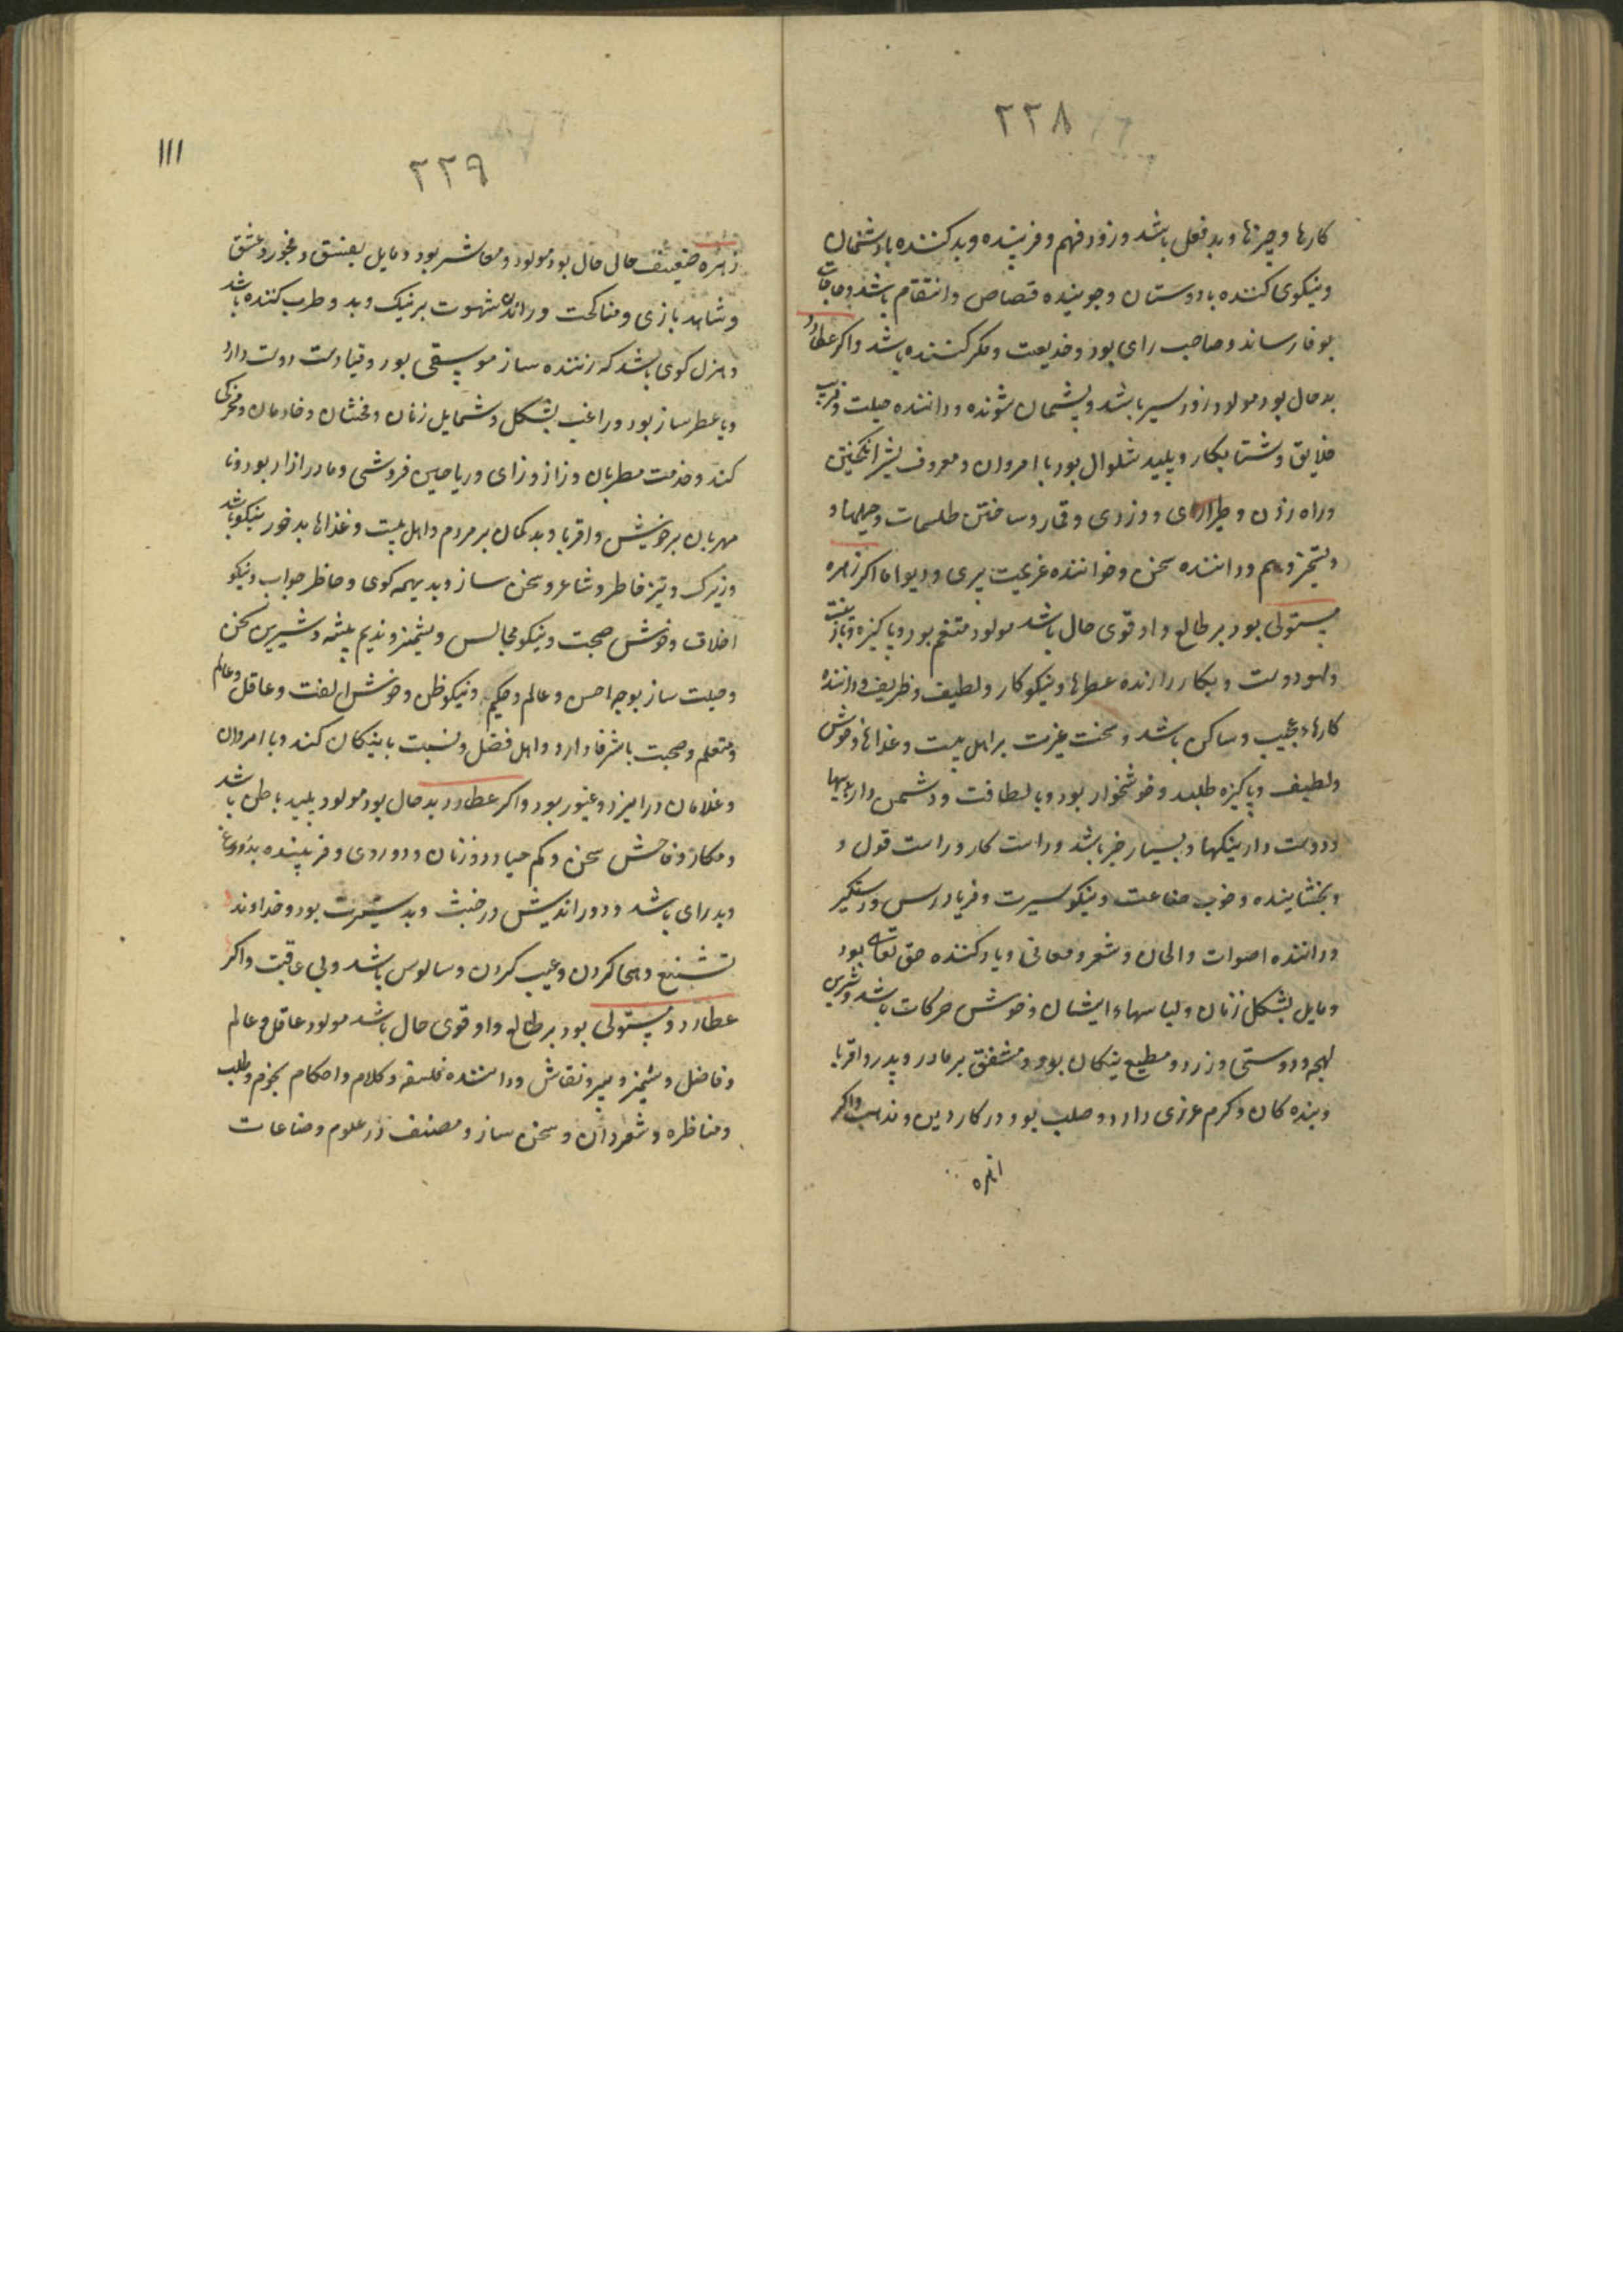 ٢٢٨
کارها و چیزها و بد فعل باشد و زود فهم و فریبنده و بد کننده با دشمنان
و نیکوی کننده با دوستان و جوینده قصاص و انتقام باشد و حاجات
بوفا رساند و صاحب رای بود و خدیعت و مکر کننده باشد و اکر عطارد
بد حال بود مولود زود سیر باشد و پشیمان شونده و داننده حیلت و فریب
خلایق و شتابکار و پلید شلوال بود با امردان و معروف بشر انکیختن
و راه زدن و طراری و دزدی و قمار و ساختن طلسمات و حیلها و
و داننده سخن و خواننده عزیمت پری و دیو اما اکر زهره
مستولی بود بر طالع و او قوی حال باشد مولود متنعم بود و پاکیزه
و لهو دوست و بکار دارنده عطرها و نیکوکار و لطیف و ظریف و داننده
کارهاء عجیب و ساکن باشد و سخت غیرت بر اهل بیت و غذاها و خوش
و لطیف و پاکیزه طلبد و خوشخوار بود و با لطافت و دشمن دار بدیها
و دوست دار نیکیها و بسیار خیر باشد و راست کار و راست قول و
و بخشاینده و خوب صناعت و نیکو سیرت و فریادرس و دستکیر
و داننده اصوات و الحان و شعر و معانی و یاد کننده حق تعالی بود
و مایل بشکل زنان و لباسهاء ایشان و خوش حرکات باشد و شیرین
لهجه و دوستی ورزد و مطیع نیکان بود و مشفق بر مادر و پدر و اقربا
و بنده کان و کرم عزیزی دارد و صلب بود در کار دین و مذهب و اکر
١١١
٢٢٩
زهره ضعیف حالی حال بود مولود و معاشر بود و مایل بفسق و فجور و عشق
و شاهد بازی و مناکحت و راندن شهوت بر نیک و بد و طرب کننده باشد
و هزل کوی باشد که زننده ساز موسیقی بود و قیادت دوست دارد
و یا عطر ساز بود و راغب بشکل و شمایل زنان و مخنثان و خادمان و مسخرکی
کند و خدمت مطربان و زاز و زای و ریاحین فروشی و مادر ازار بود و نا
مهربان بر خویش و اقربا و بد کمان بر مردم و اهل بیت و غذاها بد خورد نیکو باشد
و زیرک و تیز خاطر و شاعر و سخن ساز و بدیهه کوی و حاظر جواب و نیکو
اخلاق و خوش صحبت و نیکو مجالس و بتمیز و ندیم پیشه و شیرین سخن
و حیلت ساز بوجه احسن و عالم و حکیم و نیکو ظن و خوش الفت و عاقل و عالم
و متعلم و صحبت با شرفا دارد و اهل فضل و نسبت با نیکان کند و با امردان
و غلامان در امیزد و غیور بود و اکر عطارد بد حال بود مولود پلید باطن باشد
و مکار و فاحش سخن و کم حیا و دوزنان و دوروی و فریبنده بدروغ
و بد رای باشد و دور اندیش در خبث و بد سیرت بود و خداوند
تشنیع و هجا کردن و عیب کردن و سالوس باشد و بی عاقبت و اکر
عطارد مستولی بود بر طالع و او قوی حال باشد مولود عاقل و عالم
و فاضل و بتمیز و دبیر و نقاش و داننده فلسفه و کلام و احکام نجوم و طب
و مناظره و شعردان و سخن ساز و مصنف در علوم و صناعات